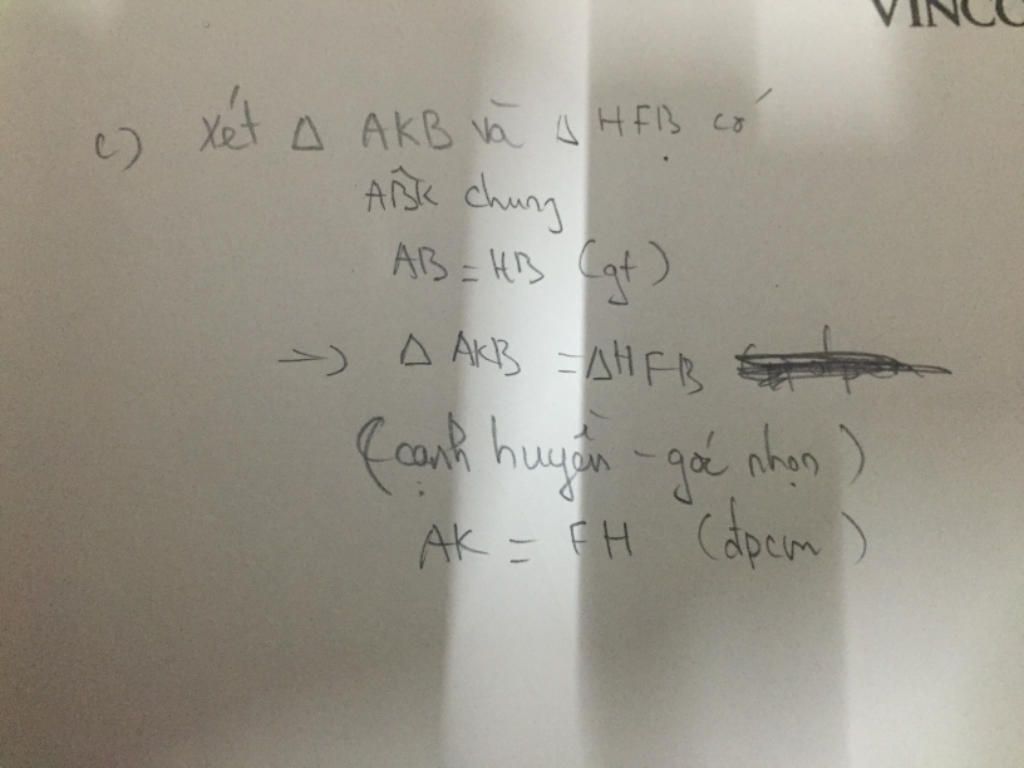 VINCO
c) Xét Δ AKB và Δ HFB có
AB̂K chung
AB = HB (gt)
→) Δ AKB = ΔHFB
(cạnh huyền - góc nhọn)
AK = FH (đpcm)